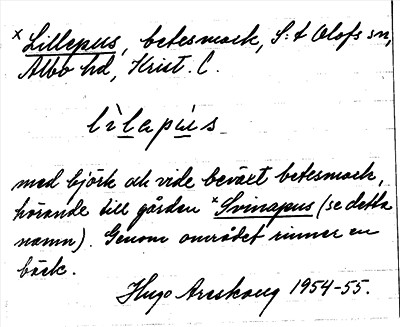 × Lillepus, betesmark, S:t Olofs sn,
Albo hd, Krist. l.
lìlapùs
med björk ock vide beväxt betesmark,
hörande till gården × Svinapus (se detta
namn). Genom området rinner en
bäck.
Hugo Areskoug 1954-55.